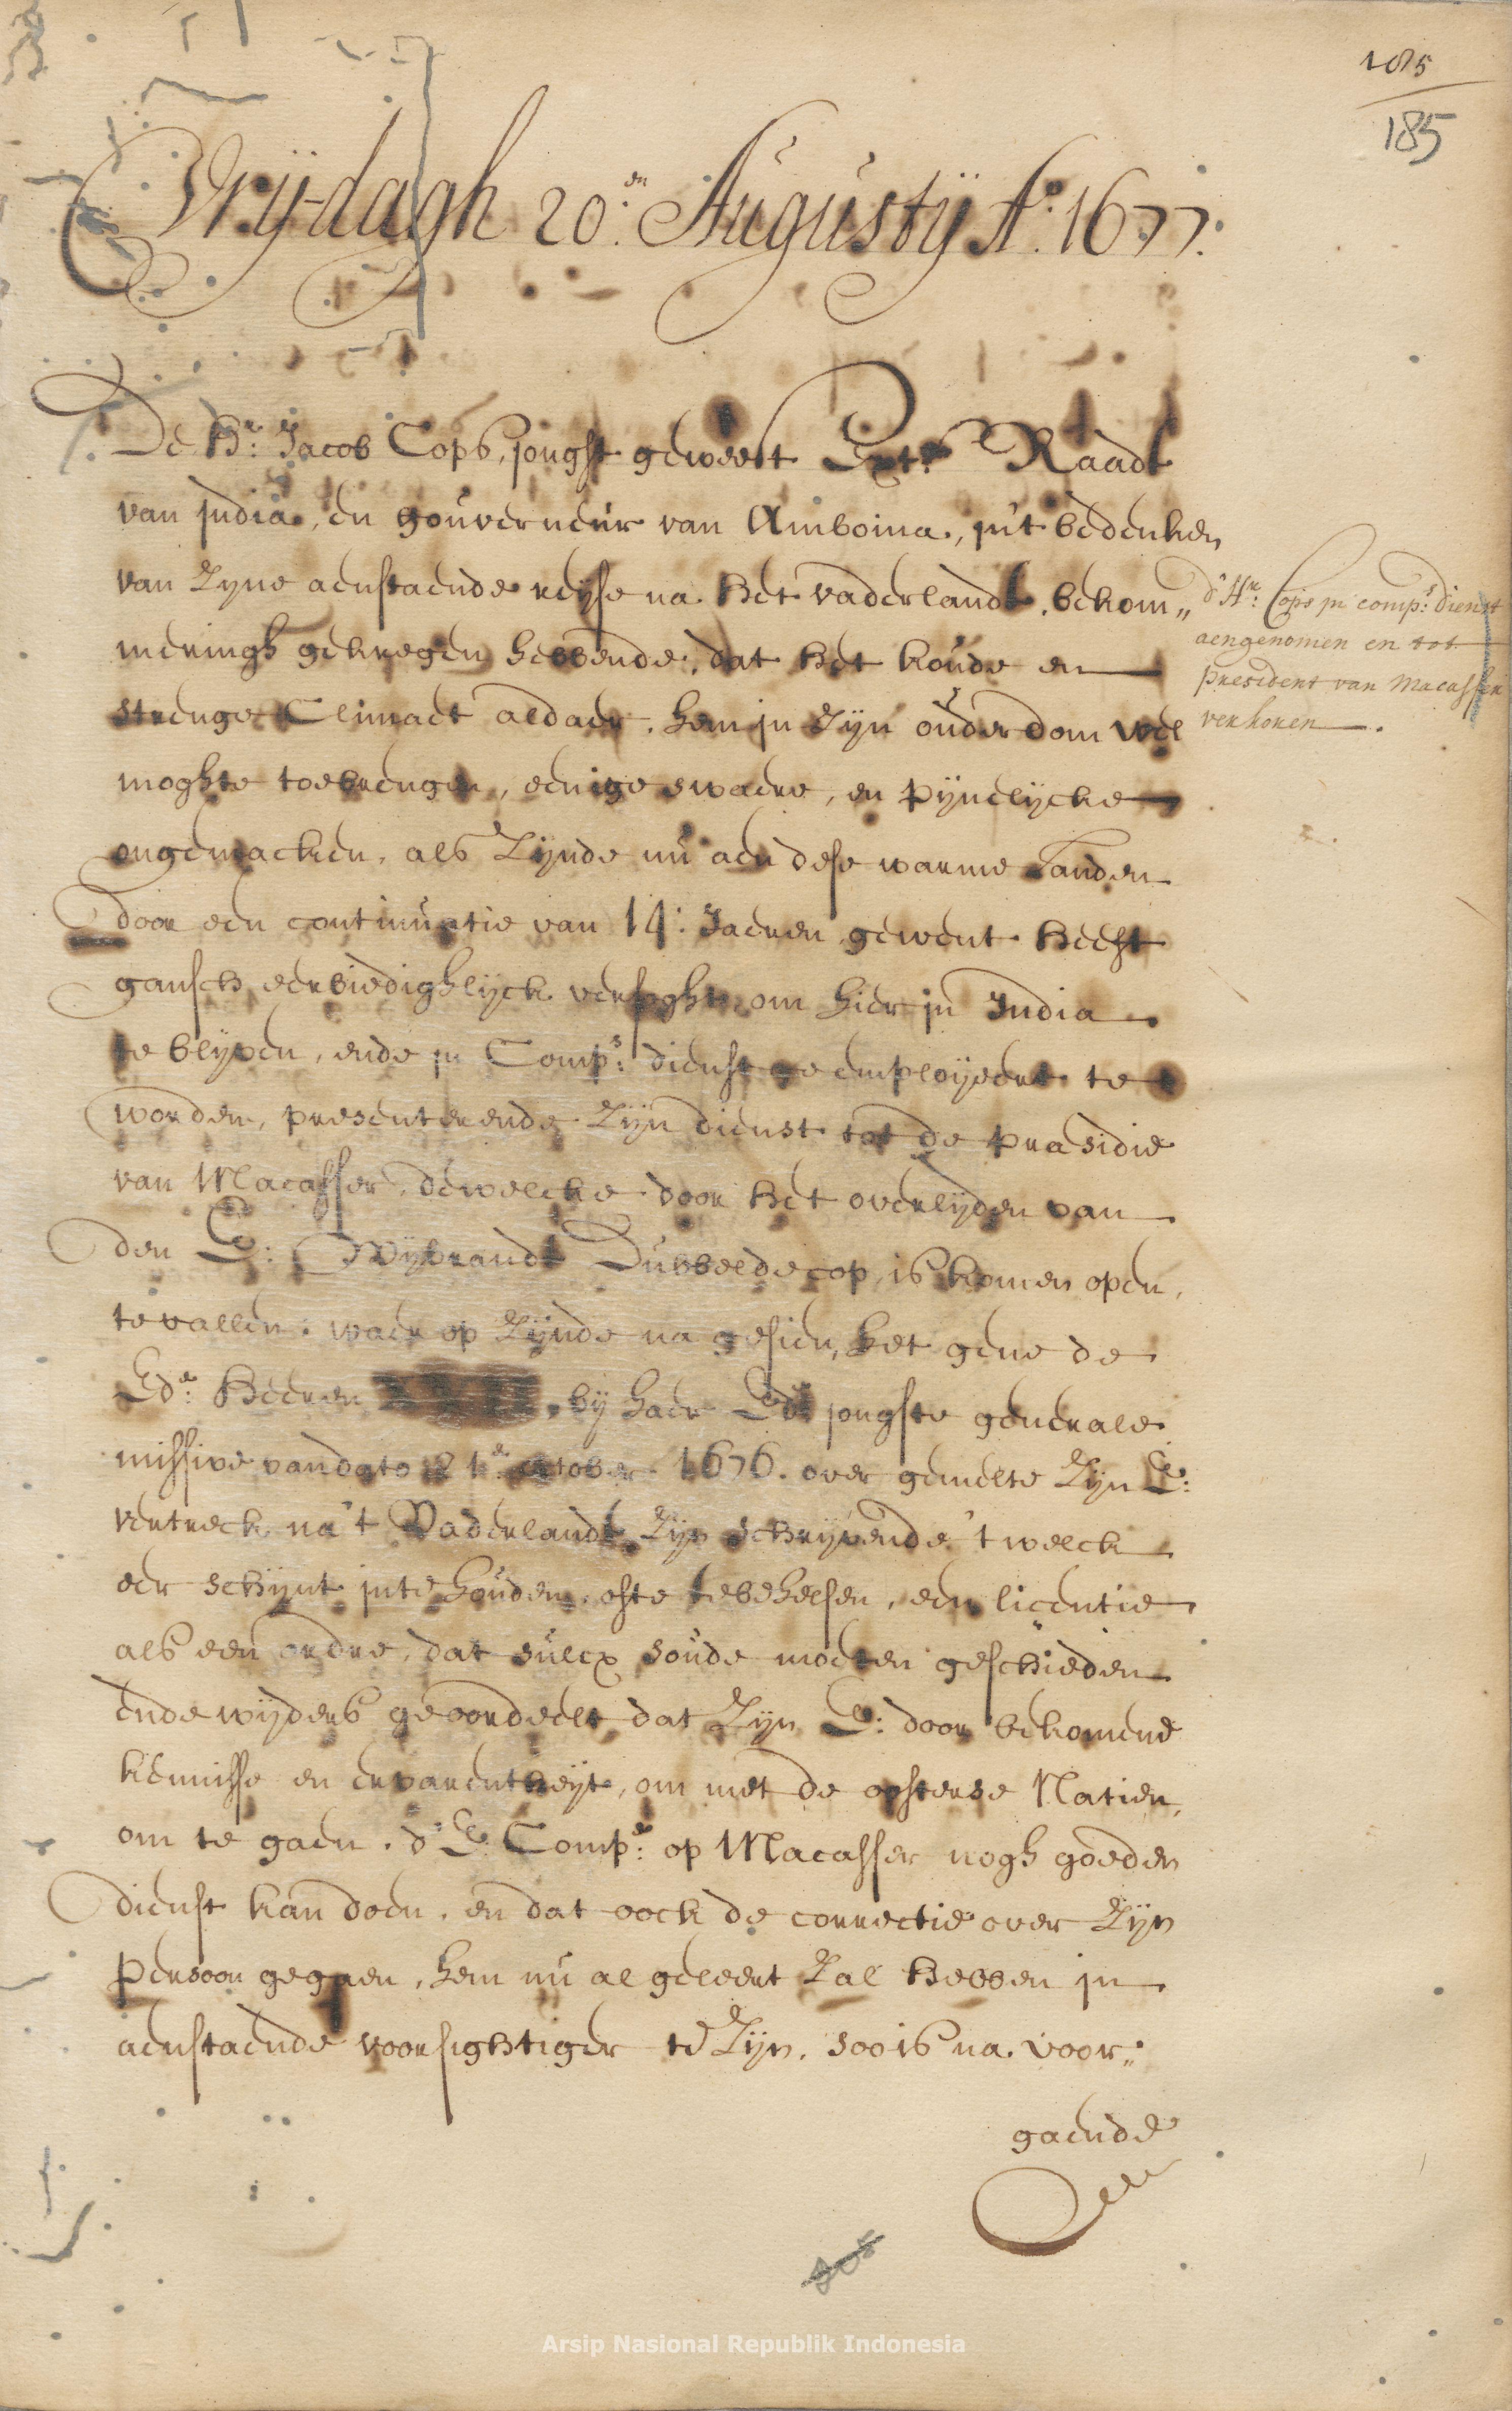 185
185
Vrÿdagh 20:en Augustÿ Ao: 1677:
De Hr: Jacob Cops, jonghst geweest Extr: Raadt
van india, en gouverneur van Amboina, uÿt bedenken
van Zyne aenstaende reijse na het vaderlandt, bekom„
meringh gekregen hebbende, dat het koude en
strenge Climaet aldaer, hem in Zÿn ouderdom wel
moghte toebrengen, eenige swaere, en pÿnelÿcke
ongemacken, als Zÿnde nu aen dese warme Landen
door een continuatie van 14: Jaeren gewent heeft
gansch eerbiedighlÿck versoght om hier in India
te blÿven, ende in Comps: dienst geemploÿeert te
worden, presenterende Zÿn dienst tot de præsidie
van Macasser, dewelcke door het overlÿden van
den E: Wÿbrandt Dubbeldecop, is komen open
te vallen: waer op Zÿnde na gesien, het gene de
Ede: Heeren bÿ haer Ed: jongste generale
missive van dato 21en october 1676. over gemelte Zÿn E:
vertreck na't Vaderlandt Zÿn schrÿvende 't welck
eer schÿnt inte houden, ofte te behelsen, een licentie
als een ordre, dat sulcx soude moeten geschieden
ende wÿders geoordeelt dat Zÿn E: door bekomene
kennisse en ervarentheÿt, om met de oosterse Natien
om te gaen. d' E: Compe: op Macasser nogh goeden
dienst kan doen, en dat oock de correctie over Zÿn
persoon gegaen, hem nu al geleert Zal hebben in
aenstaende voorsightiger te Zÿn. soo is na voor„
gaende
d' Hr: Cops in comps: dienst
aengenomen en tot
president van Macasser
verkoren
Arsip Nasional Republik Indonesia